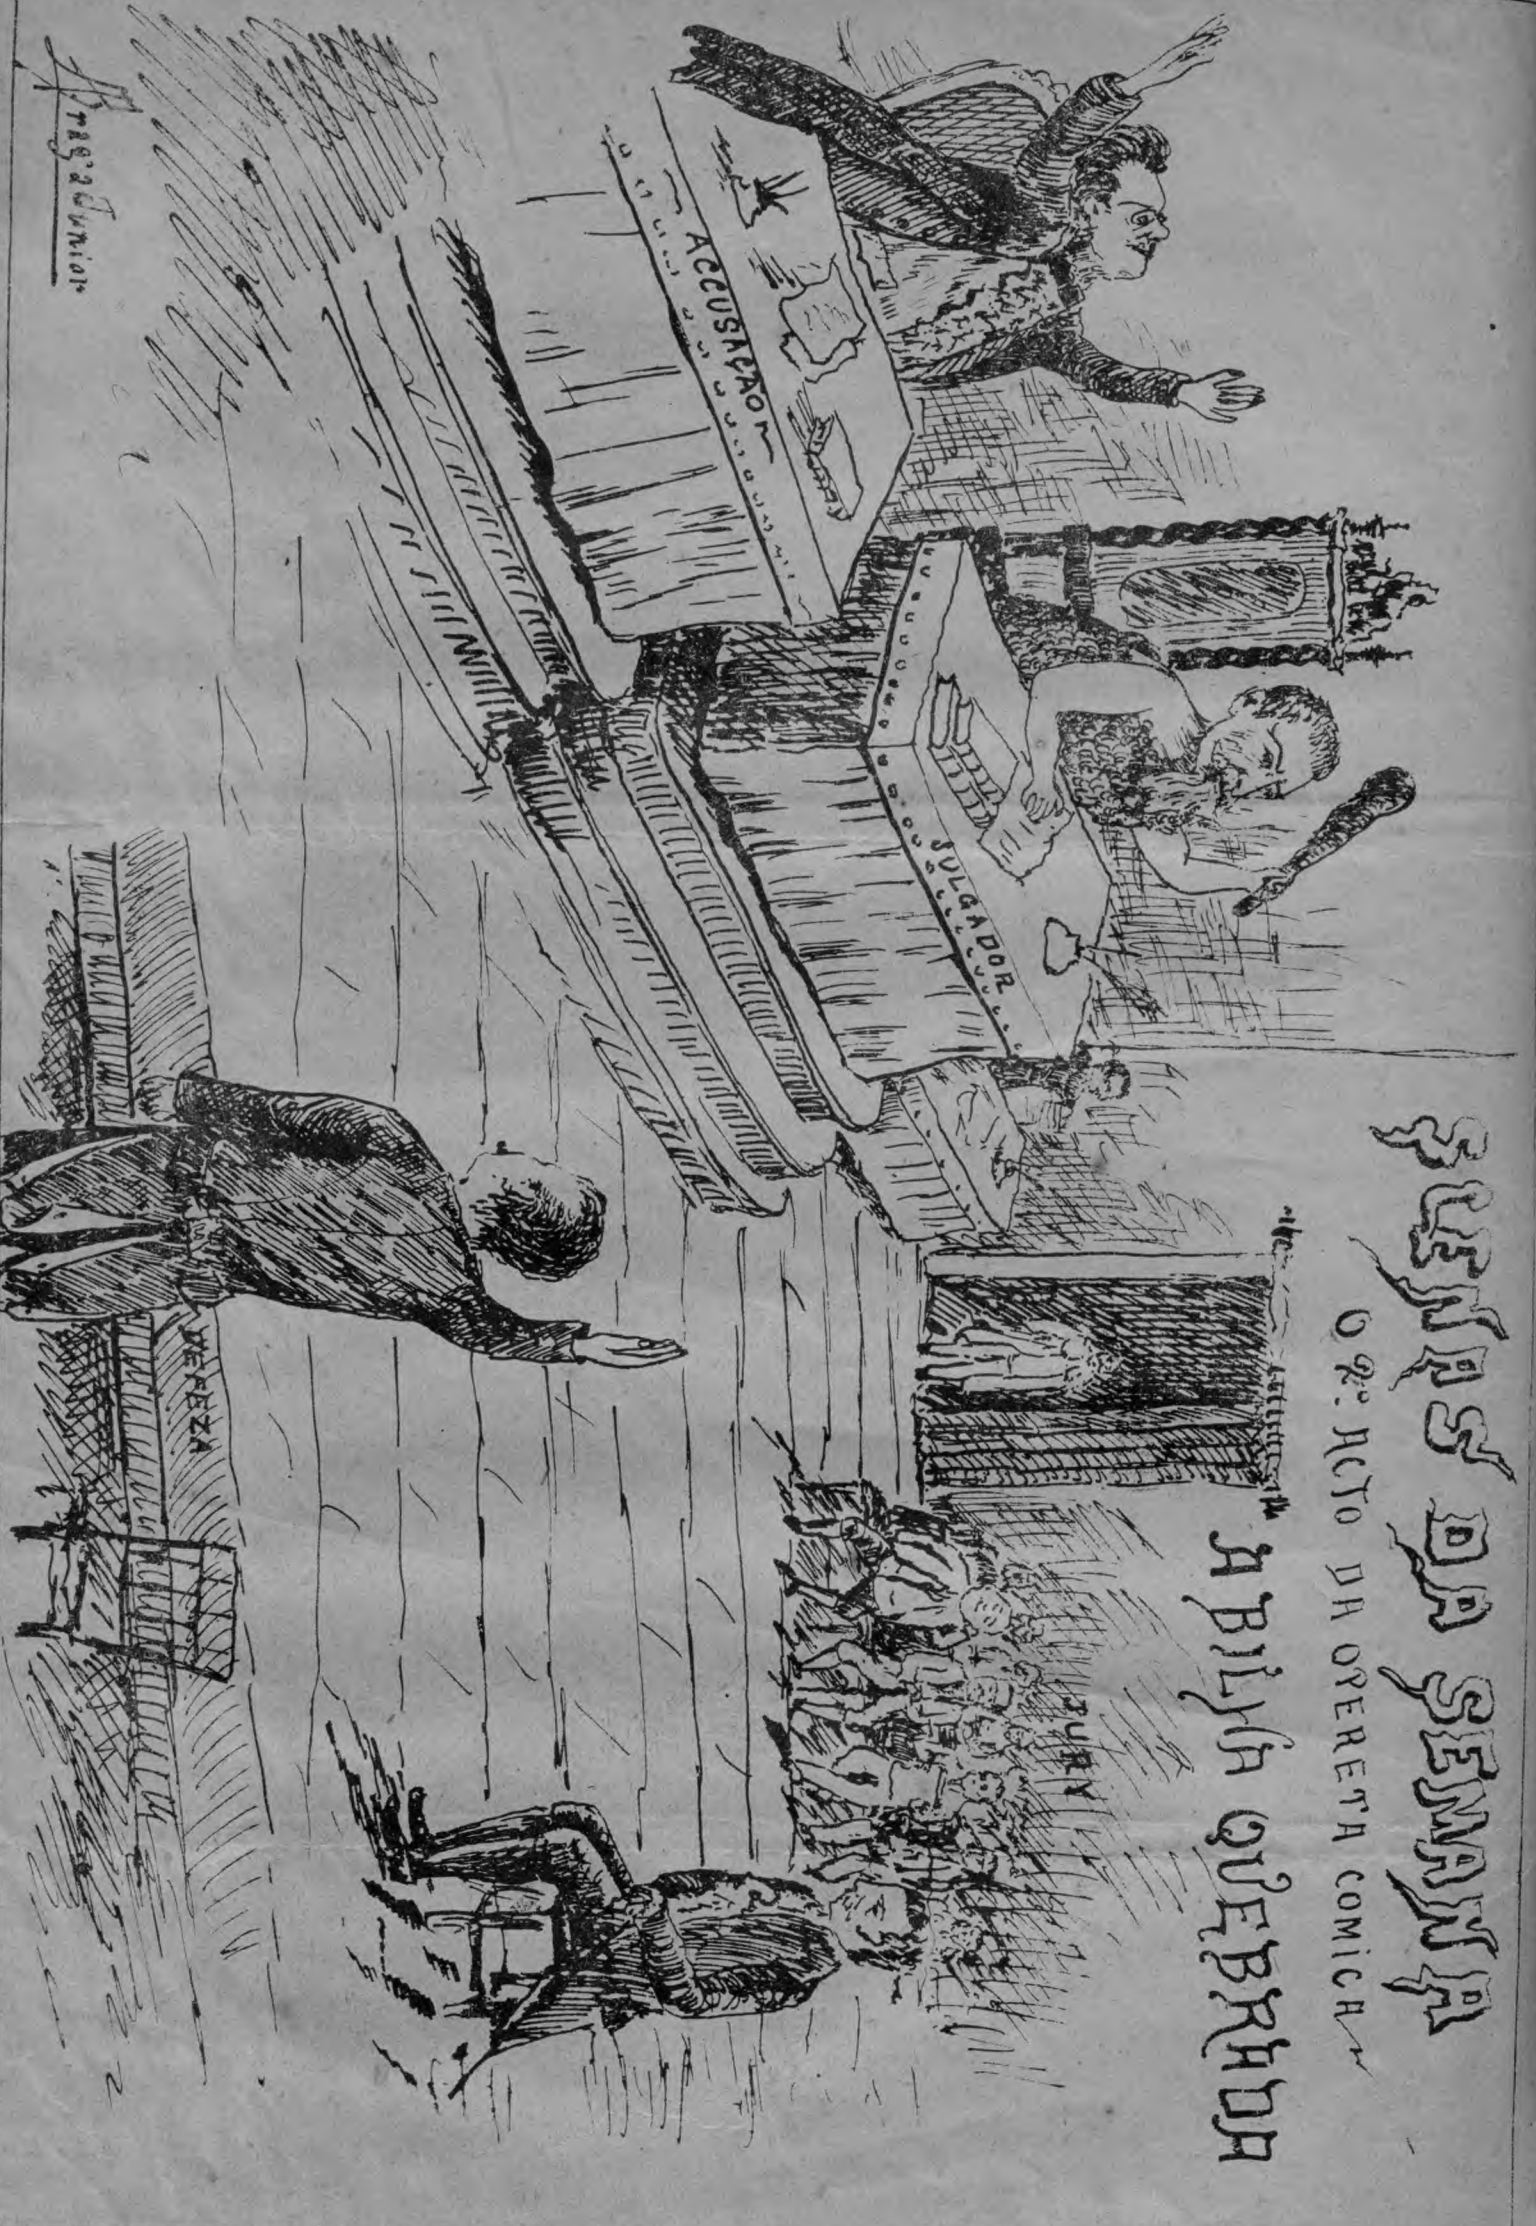 SCENAS DA SEMANA
O 2º. ACTO DA OPERETA COMICA
"A BILHA QUEBRADA
ACCUSAÇÃO
JULGADOR
JURY
DEFEZA
Fraga Junior